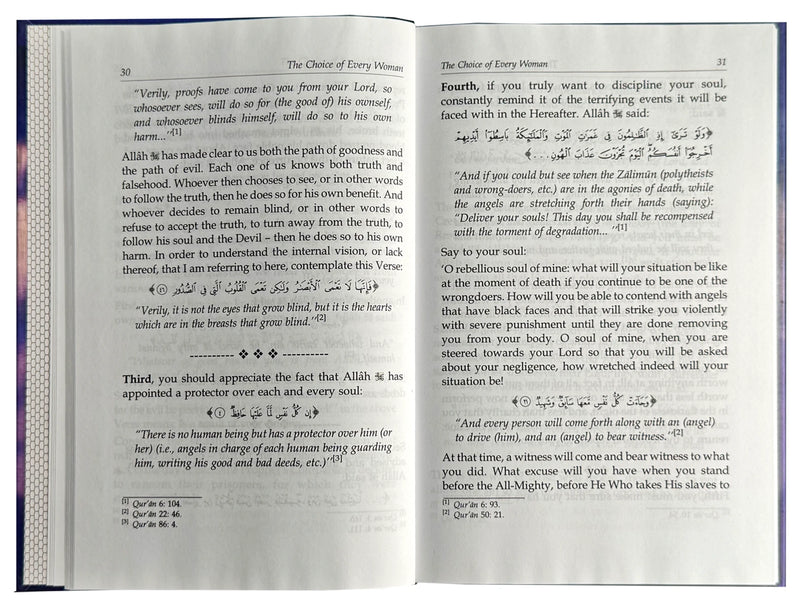 30
The Choice of Every Woman
"Verily, proofs have come to you from your Lord, so
whosoever sees, will do so for (the good of) his ownself,
and whosoever blinds himself, will do so to his own
harm..."[1]
Allâh ﷻ has made clear to us both the path of goodness and
the path of evil. Each one of us knows both truth and
falsehood. Whoever then chooses to see, or in other words
to follow the truth, then he does so for his own benefit. And
whoever decides to remain blind, or in other words to
refuse to accept the truth, to turn away from the truth, to
follow his soul and the Devil – then he does so to his own
harm. In order to understand the internal vision, or lack
thereof, that I am referring to here, contemplate this Verse:
﴿فَإِنَّهَا لَا تَعْمَى الْأَبْصَارُ وَلَكِن تَعْمَى الْقُلُوبُ الَّتِي فِي الصُّدُورِ ﴿٤٦﴾
"Verily, it is not the eyes that grow blind, but it is the hearts
which are in the breasts that grow blind."[2]
---------- ❖ ❖ ❖ ----------
Third, you should appreciate the fact that Allâh ﷻ has
appointed a protector over each and every soul:
﴿إِن كُلُّ نَفْسٍ لَّمَّا عَلَيْهَا حَافِظٌ ﴿٤﴾
"There is no human being but has a protector over him (or
her) (i.e., angels in charge of each human being guarding
him, writing his good and bad deeds, etc.)"[3]
[1] Qur'ân 6: 104.
[2] Qur'ân 22: 46.
[3] Qur'ân 86: 4.
The Choice of Every Woman
31
Fourth, if you truly want to discipline your soul,
constantly remind it of the terrifying events it will be
faced with in the Hereafter. Allâh ﷻ said:
﴿وَلَوْ تَرَىٰ إِذِ الظَّالِمُونَ فِي غَمَرَاتِ الْمَوْتِ وَالْمَلَائِكَةُ بَاسِطُوا أَيْدِيهِمْ
أَخْرِجُوا أَنفُسَكُمُ الْيَوْمَ تُجْزَوْنَ عَذَابَ الْهُونِ . . .﴾
"And if you could but see when the Zâlimûn (polytheists
and wrong-doers, etc.) are in the agonies of death, while
the angels are stretching forth their hands (saying):
"Deliver your souls! This day you shall be recompensed
with the torment of degradation... "[1]
Say to your soul:
'O rebellious soul of mine: what will your situation be like
at the moment of death if you continue to be one of the
wrongdoers. How will you be able to contend with angels
that have black faces and that will strike you violently
with severe punishment until they are done removing
you from your body. O soul of mine, when you are
steered towards your Lord so that you will be asked
about your negligence, how wretched indeed will your
situation be!
﴿وَجَاءَتْ كُلُّ نَفْسٍ مَّعَهَا سَائِقٌ وَشَهِيدٌ ﴿٢١﴾
"And every person will come forth along with an (angel)
to drive (him), and an (angel) to bear witness."[2]
At that time, a witness will come and bear witness to what
you did. What excuse will you have when you stand
before the All-Mighty, before He Who takes His slaves to
[1] Qur'ân 6: 93.
[2] Qur'ân 50: 21.